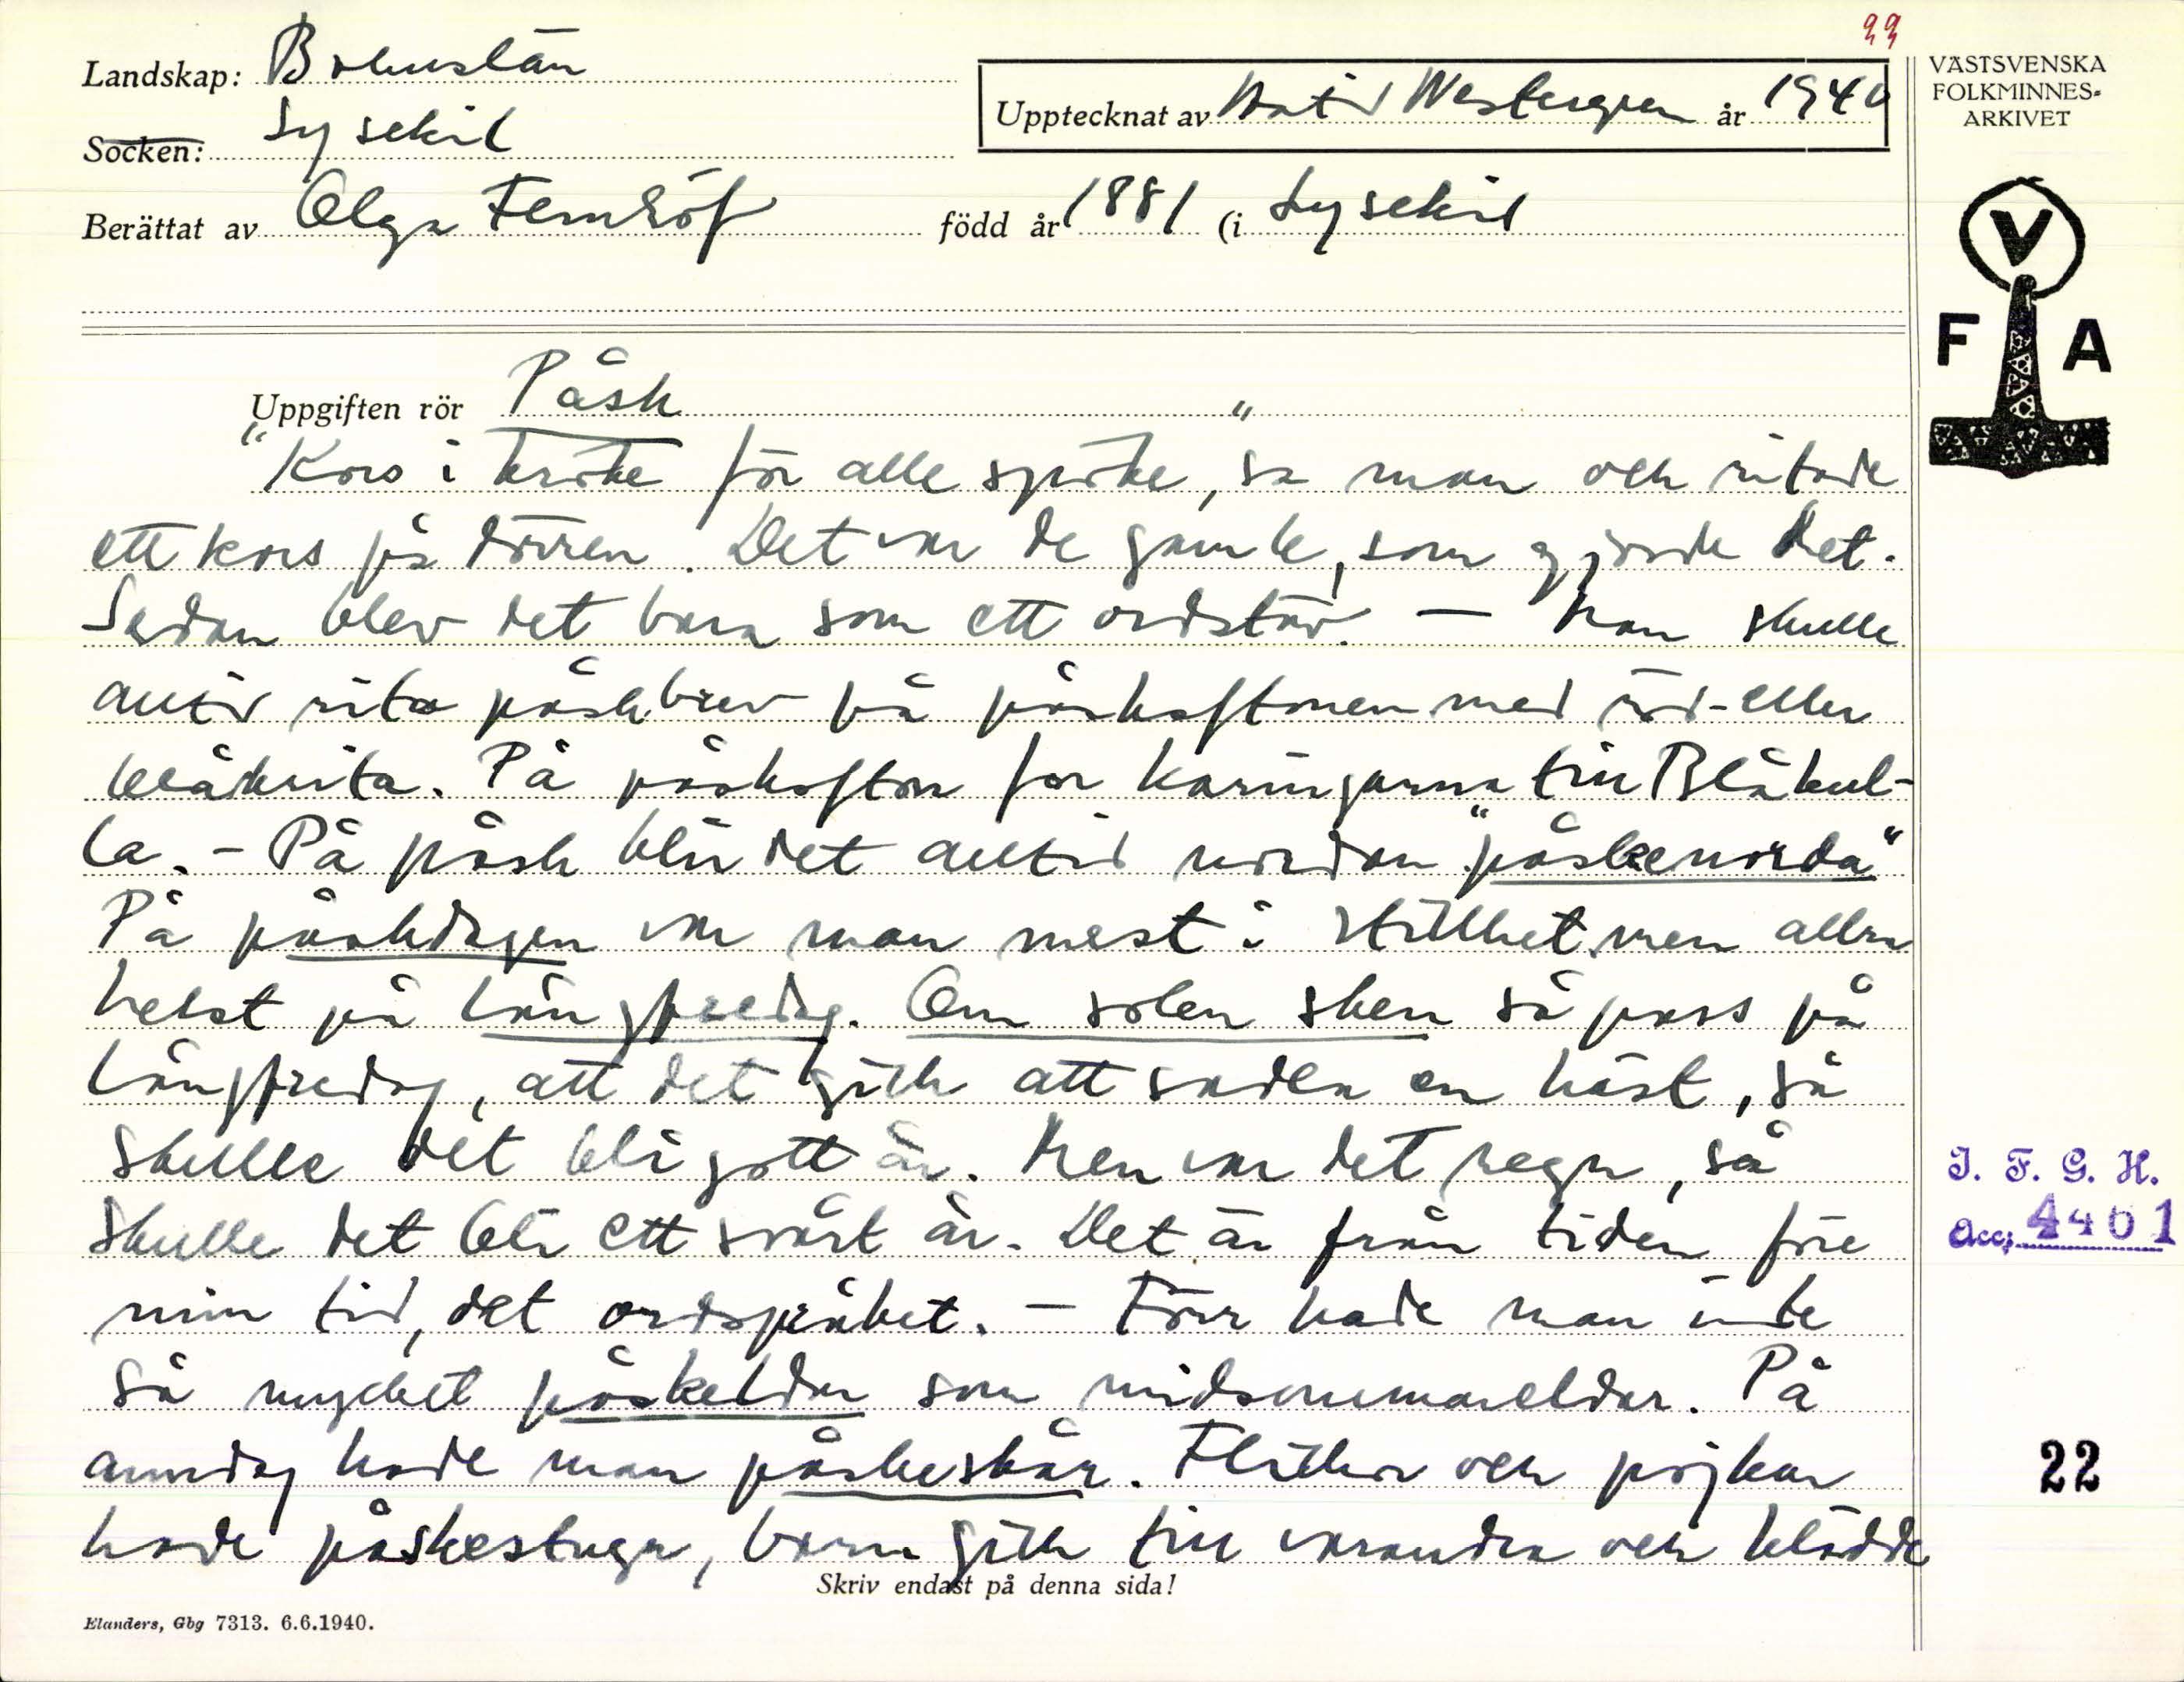 99
Landskap: Bohuslän
Socken: Lysekil
Upptecknat av Westergren år 1940
Berättat av Olga Femlöf född år 1881 (i Lysekil
VÄSTSVENSKA
FOLKMINNES-
ARKIVET
V
F A
Uppgiften rör Påsk
"Kors i kröke för alle spröke", sa man och ritade
ett kors på dörren. Det var de gamle, som gjorde det.
Sedan blev det bara som ett ordstäv. – Man skulle
alltid rita påskbrev på påskaftonen med röd- eller
blåkrita. På påskafton for käringarna till Blåkul-
la. – På påsk blir det alltid nordan "påskenorda"
På påskdagen var man mest i stillhet men allra
helst på långfredag. Om solen sken så pass på
långfredag, att det gick att sadla en häst, så
skulle det bli gott år. Men var det regn, så
skulle det bli ett svårt år. Det är från tiden före
min tid, det ordspråket. – Förr hade man inte
så mycket påskeldar som midsommareldar. På
annandag hade man påskeskär. Flickor och pojkar
hade påskestuga, barn gick till varandra och klädde
Skriv endast på denna sida!
Elanders, Gbg 7313. 6.6.1940.
I. F. G. H.
Acc; 4401
22